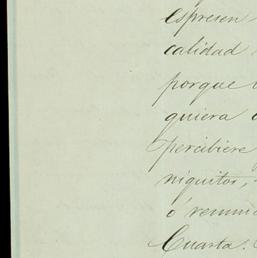 espresen
calidad
porque
quiera
percibiere
niquitos,
ó renunc
Cuarta.